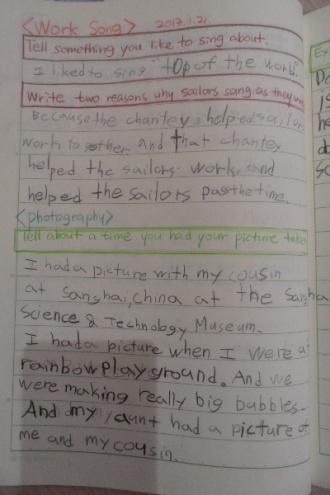 <Work Song> 2017.1.21.
Tell something you like to sing about.
I liked to sing "top of the world".
Write two reasons why sailors song as they
Because the chantey helped sailors
work together and that chantey
helped the sailors work and
helped the sailors pass the time.
<photography>
Tell about a time you had your picture taken
I had a picture with my cousin
at Sanghai, china at the Sangha
Science & Technology Museum.
I had a picture when I were at
rainbow playground. And we
were making really big bubbles.
And my aunt had a picture of
me and my cousin.